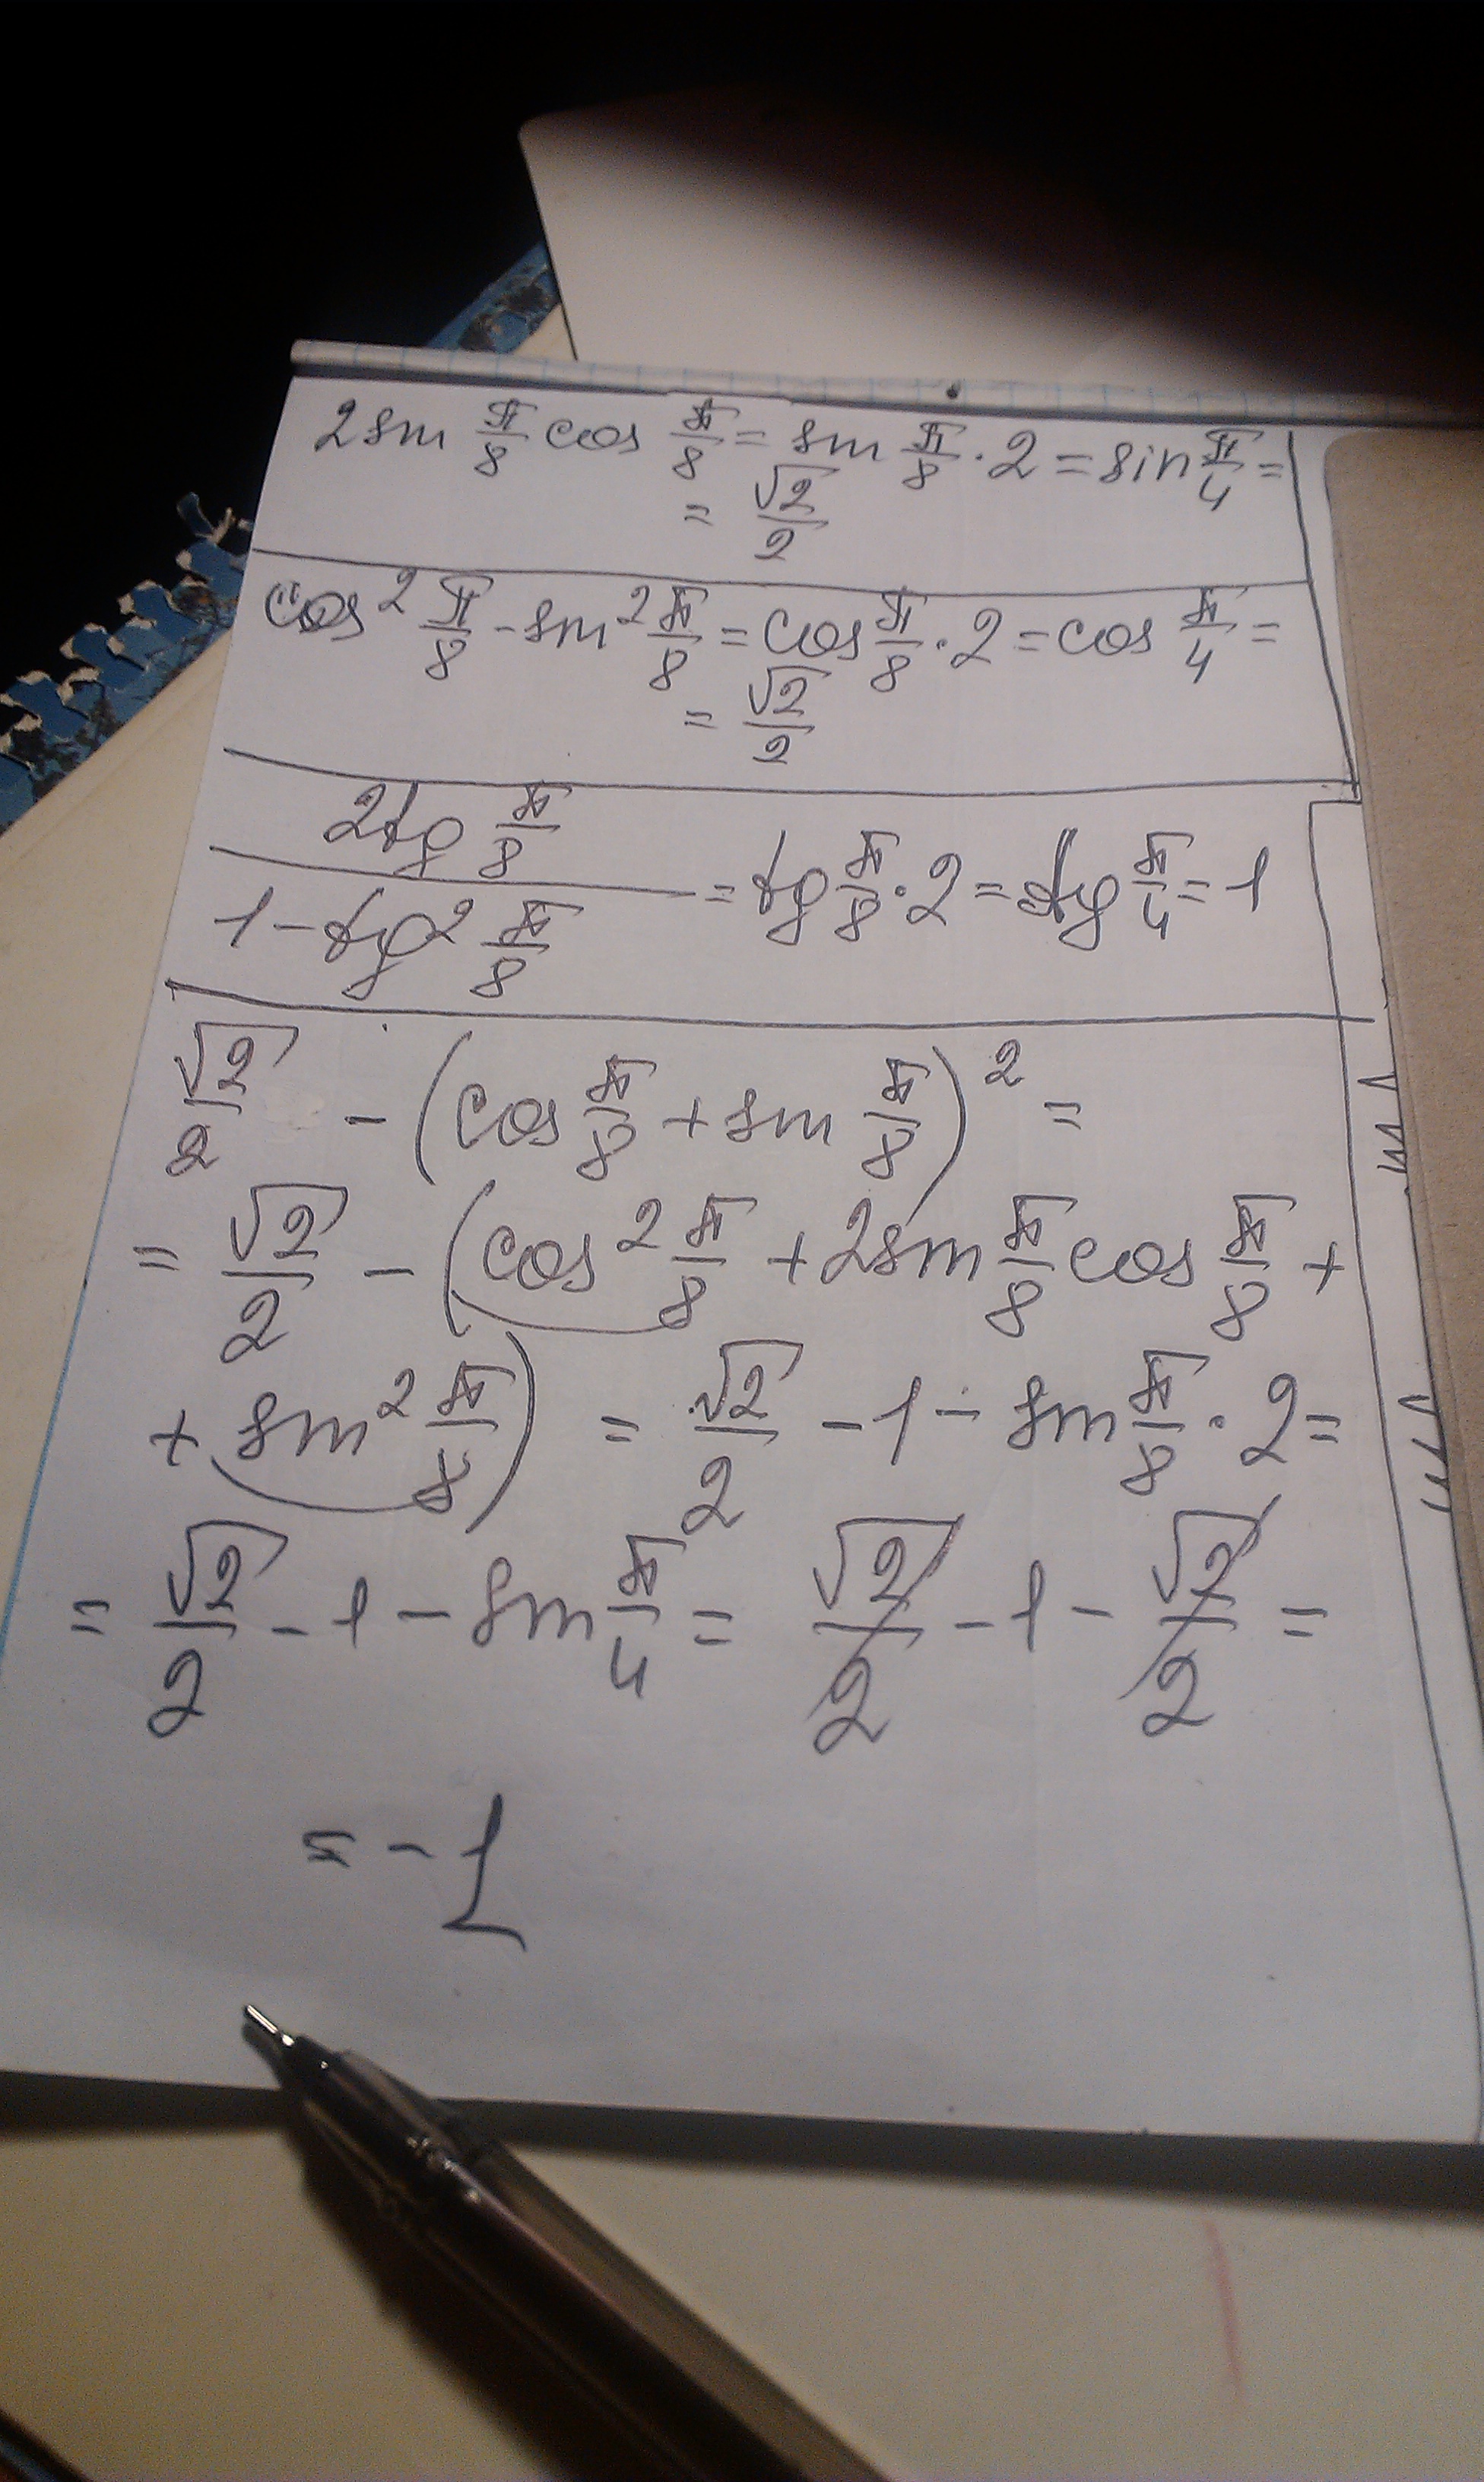 2 sin π/8 cos π/8 = sin π/8 · 2 = sin π/4 =
= √2/2
cos² π/8 - sin² π/8 = cos π/8 · 2 = cos π/4 =
= √2/2
2tg π/8 / 1 - tg² π/8 = tg π/8 · 2 = tg π/4 = 1
√2/2 - (cos π/8 + sin π/8)² =
= √2/2 - (cos² π/8 + 2 sin π/8 cos π/8 +
+ sin² π/8) = √2/2 - 1 - sin π/8 · 2 =
= √2/2 - 1 - sin π/4 = √2/2 - 1 - √2/2 =
= -1